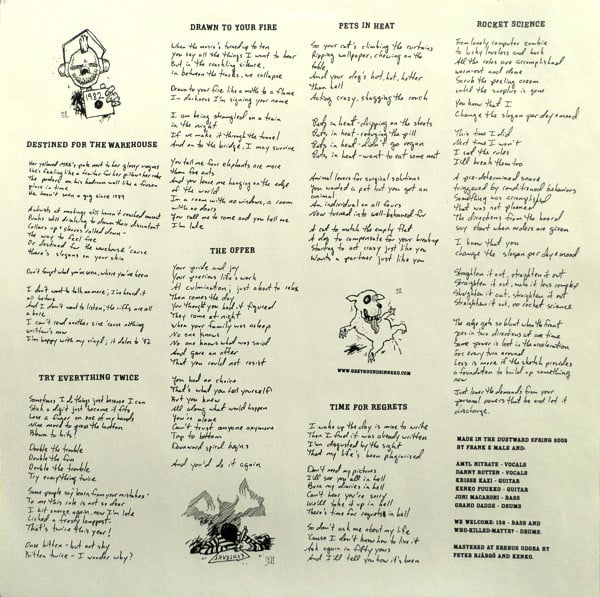 1982
DESTINED FOR THE WAREHOUSE
she's feeling like a traitor for her
place in time
He hasn't seen a gig since 1989
Activists at meetings still haven't reached consent
Punks still drinking to drown their discontent
Collars up & sleeves rolled down
The way to feel free
Or destined for the warehouse 'cause
there's slogans on your skin
Don't forget what you've seen, where you've been
I don't want to talk no more; I've heard it
all before
And I don't want to listen; the riffs are all
a bore
I can't read another zine 'cause nothing
written's new
I'm happy with my vinyl; it dates to '82
TRY EVERYTHING TWICE
Sometimes I do things just because I can
Stick a digit just because it fits
Lose a finger on one of my hands
Nine more to press the button
Blown to bits!
Double the trouble
Double the fun
Double the trouble
Try everything twice
Some people say learn from your mistakes
To me this rule is not so clear
I hit snooze again, now I'm late
Licked a frosty lamppost
That's twice this year!
Once bitten - but not shy
Bitten twice - I wonder why?
DRAWN TO YOUR FIRE
When the music's turned up to ten
You say all the things I want to hear
But in the crackling silence,
in between the tracks, we collapse
Drawn to your fire like a moth to a flame
In darkness I'm signing your name
I am being strangled on a train
in the night
If we make it through the tunnel
And on to the bridge, I may survive
You tell me four elephants are more
than five ants
And you leave me hanging on the edge
of the world
In a room with no windows, a room
with no doors
You call me to come and you tell me
I'm late
THE OFFER
Your pride and joy
Your precious life's work
At culmination; just about to relax
Then comes the day
You thought you had it figured
They come at night
When your family was asleep
No one knows
No one knows what was said
And gave an offer
That you could not resist
You had no choice
That's what you tell yourself
But you knew
All along what would happen
You're alone
Can't trust anyone anymore
Top to bottom
Downward spiral begins
And you'd do it again
PETS IN HEAT
So your cat's climbing the curtains
Ripping wallpaper, chewing on the
table
And your dog's hot, hot, hotter
than hell
Acting crazy, shagging the couch
Pets in heat - dripping on the sheets
Pets in heat - refusing the pill
Pets in heat - didn't go vegan
Pets in heat - want to eat some meat
Animal lovers for surgical solutions
You wanted a pet but you got an
animal
An individual on all fours
Now turned into well-behaved fur
A cat to match the empty flat
A dog to compensate for your breakup
Starting to act crazy just like you
Wants a partner just like you
WWW.GREYHOUNDSINNEED.COM
TIME FOR REGRETS
I wake up the day is mine to write
Then I find it was already written
I'm disgusted by the sight
That my life's been plagiarised
Don't need my pictures
I'll see you all in hell
Burn my diaries in hell
Can't hear, you're sorry
Would take it up in hell
There's time for regrets in hell
So don't ask me about my life
'Cause I don't know how to live it
Ask again in fifty years
And I'll tell you how it's been
ROCKET SCIENCE
From lonely computer zombie
to lucky loveless and back
All the roles are accomplished
worn-out and done
Scrub the peeling cream
until the surplus is gone
You know that I
Change the slogan per day & mood
This time I did
Next time I won't
I set the rules
I'll break them too
A pre-determined snare
triggered by conditioned behaviours
Something was accomplished
that was not planned
The directions from the board
say start when orders are given
I know that you
change the slogan per day & mood
Straighten it out, straighten it out
Straighten it out, make it less complex
Straighten it out, straighten it out
Straighten it out, no rocket science
The edge gets so blunt when the front
goes in two directions at one time
Some power is lost in the acceleration
For every turn around
Less is more if the sketch provides
a foundation to build up something
new
Just lower the demands from your
personal powers that be and let it
discharge.
MADE IN THE DUSTWARD SPRING 2008
BY FRANK & MALE AND:
AMYL NITRATE - VOCALS
DANNY ROTTEN - VOCALS
KRISSE KAZI - GUITAR
KENKO PUUKKO - GUITAR
JONI MACARONI - BASS
GRAND DADDE - DRUMS
WE WELCOME: 136 - BASS AND
WHO-KILLED-MATTE? - DRUMS.
MASTERED AT EREBUS ODORA BY
PETER BJÄRGÖ AND KENKO.